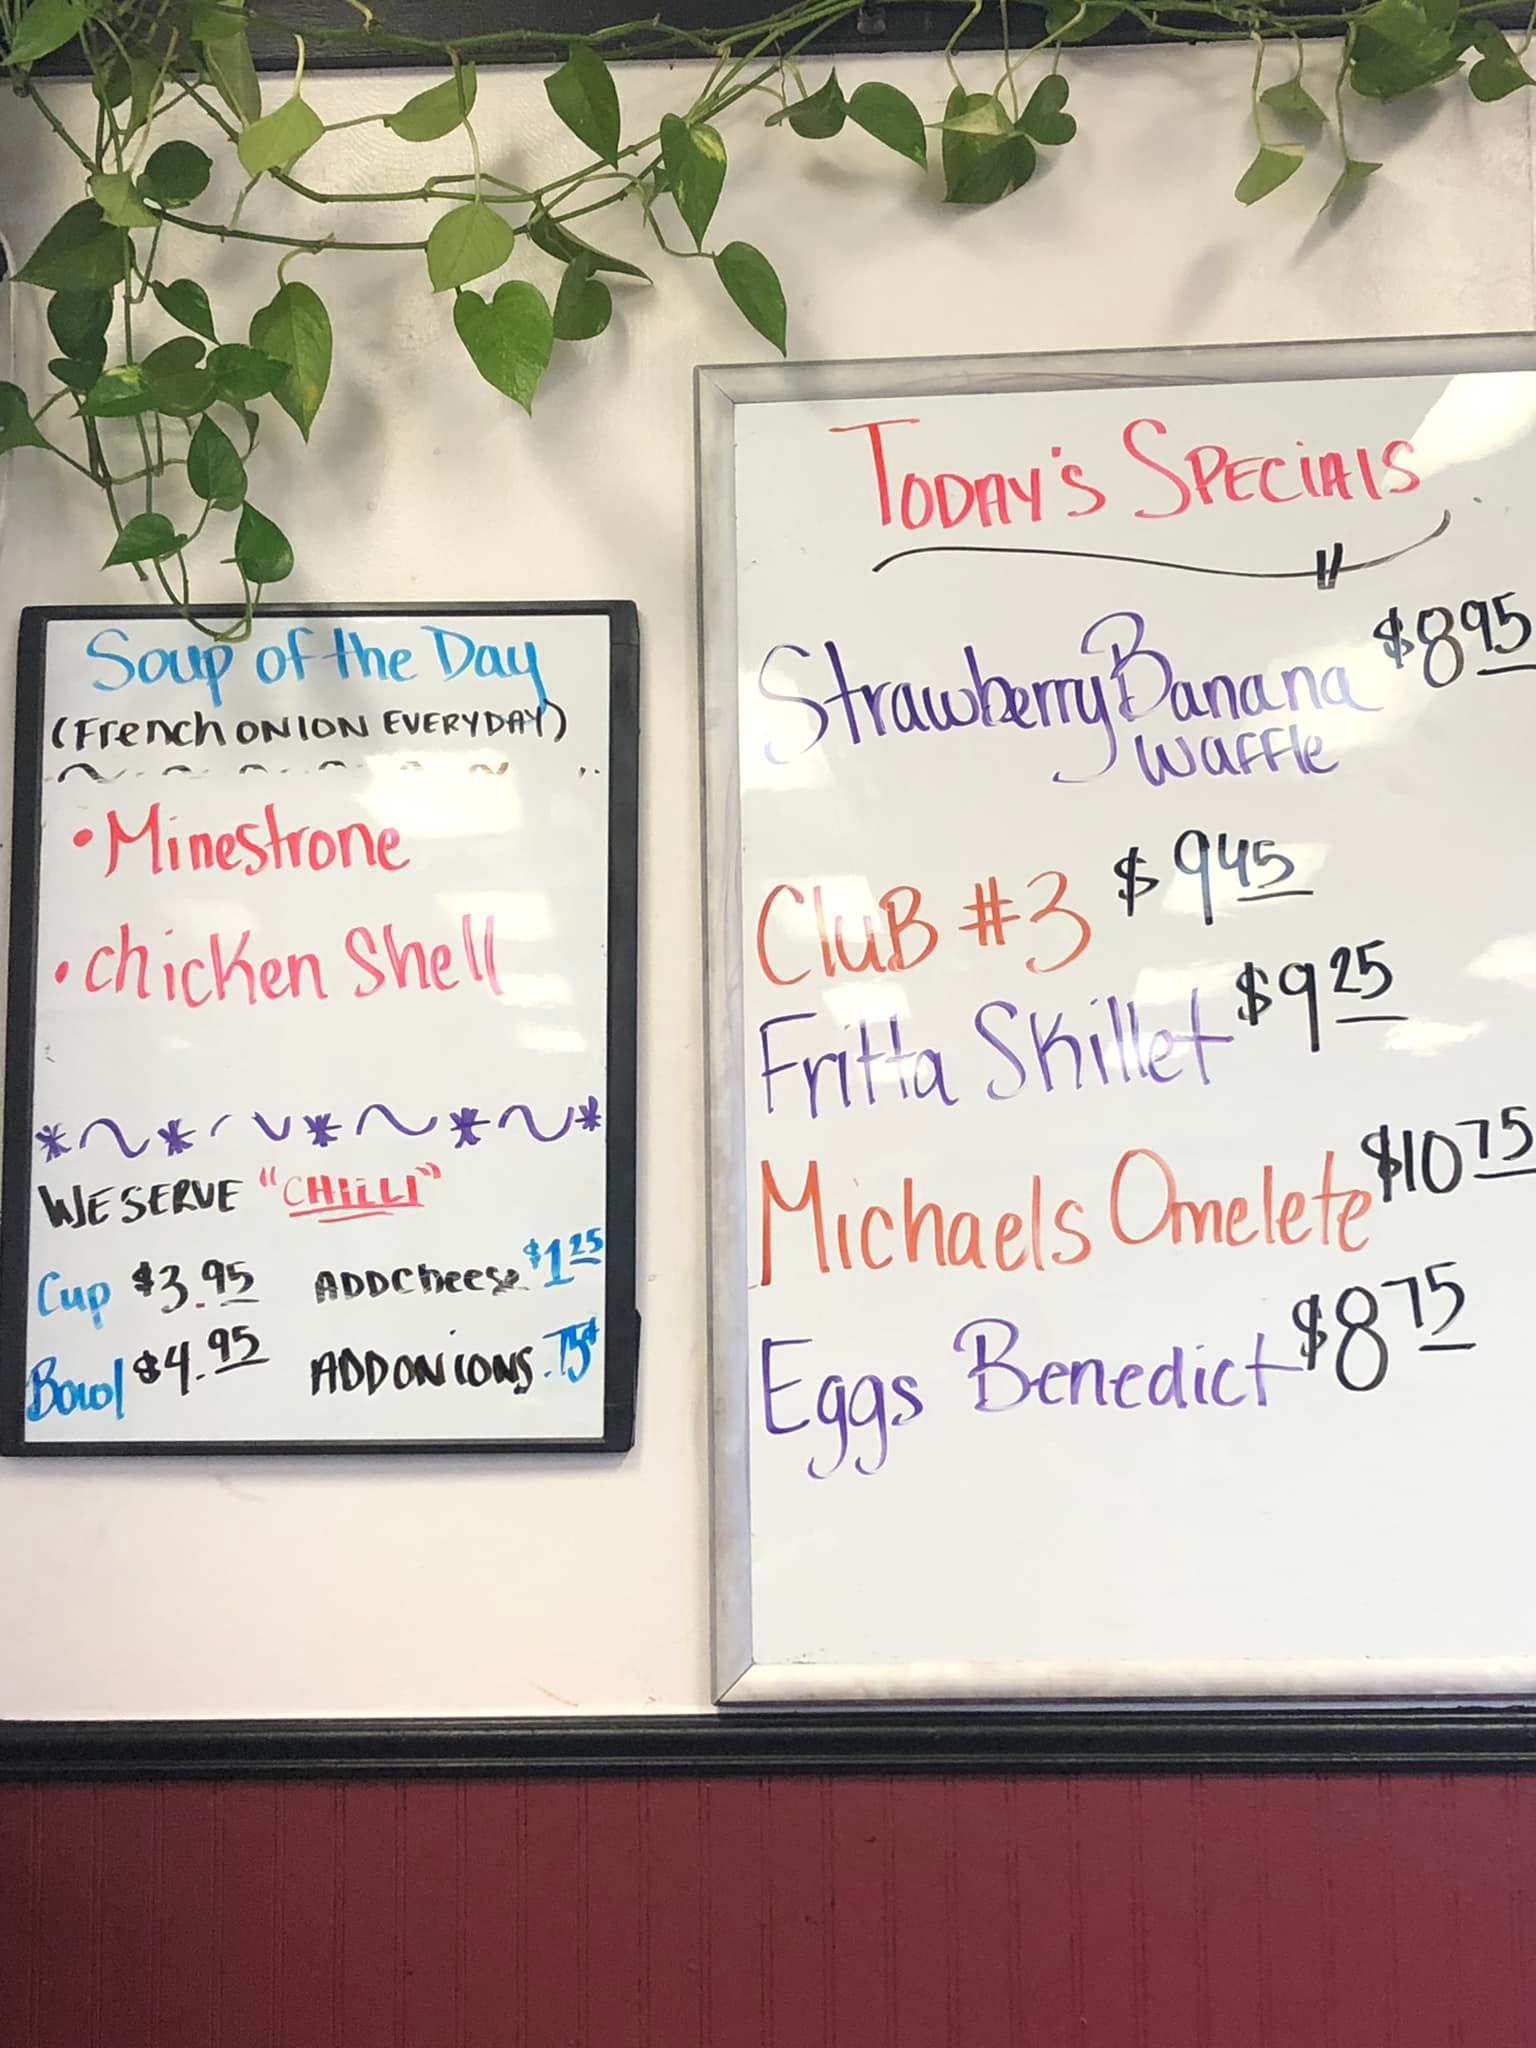 Soup of the Day
(French ONION EVERYDAY)
• Minestrone
• Chicken Shell
WE SERVE "CHILLI"
Cup $3.95 ADD Cheese $1.25
Bowl $4.95 ADD ONIONS .75¢
TODAY'S SPECIALS
Strawberry Banana $8.95
WAFFLE
CLUB #3 $9.45
Fritta Skillet $9.25
Michaels Omelete $10.75
Eggs Benedict $8.75